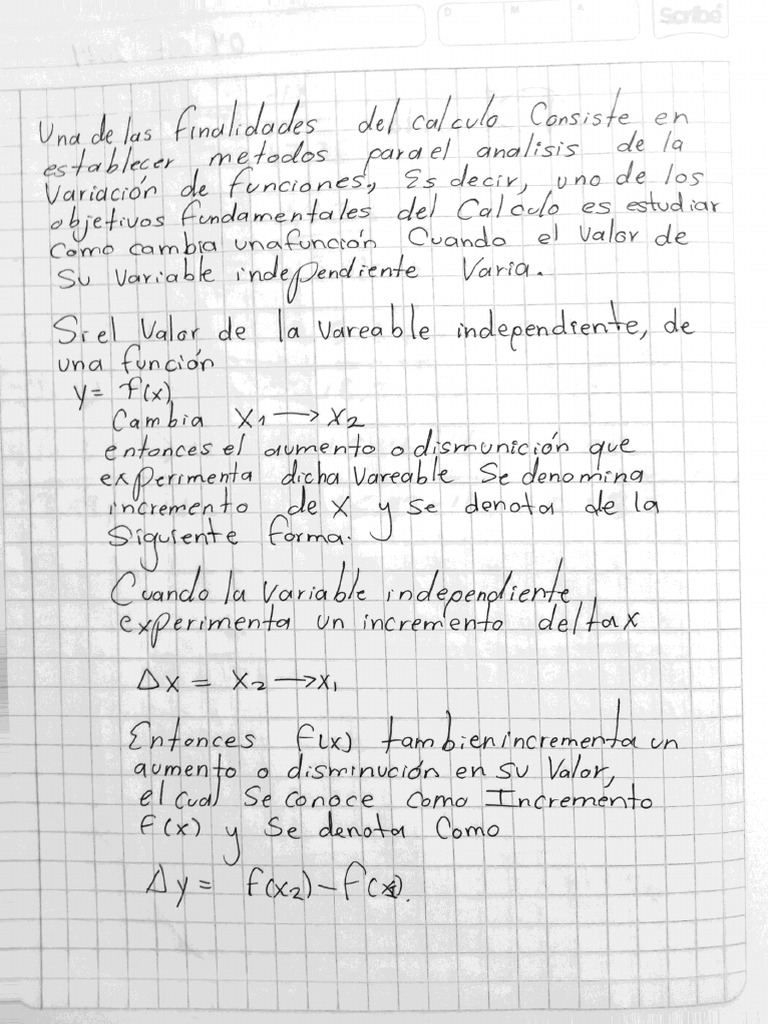 Scribe
D M A
Una de las finalidades del calculo Consiste en
establecer metodos para el analisis de la
Variación de funciones, Es decir, uno de los
objetivos fundamentales del Calculo es estudiar
Como cambia una función Cuando el Valor de
Su Variable independiente Varia.
Si el Valor de la Vareable independiente, de
una función
y = f(x)
Cambia X₁ → X₂
entonces el aumento o dismunición que
experimenta dicha Vareable Se denomina
incremento de X y se denota de la
Siguiente forma.
Cuando la variable independiente
experimenta un incremento delta x
Δx = X₂ → X₁
Entonces f(x) tambien incrementa un
aumento o disminución en su Valor,
el cual Se conoce como Incremento
f(x) y Se denota Como
Δy = f(x₂) - f(x₁).